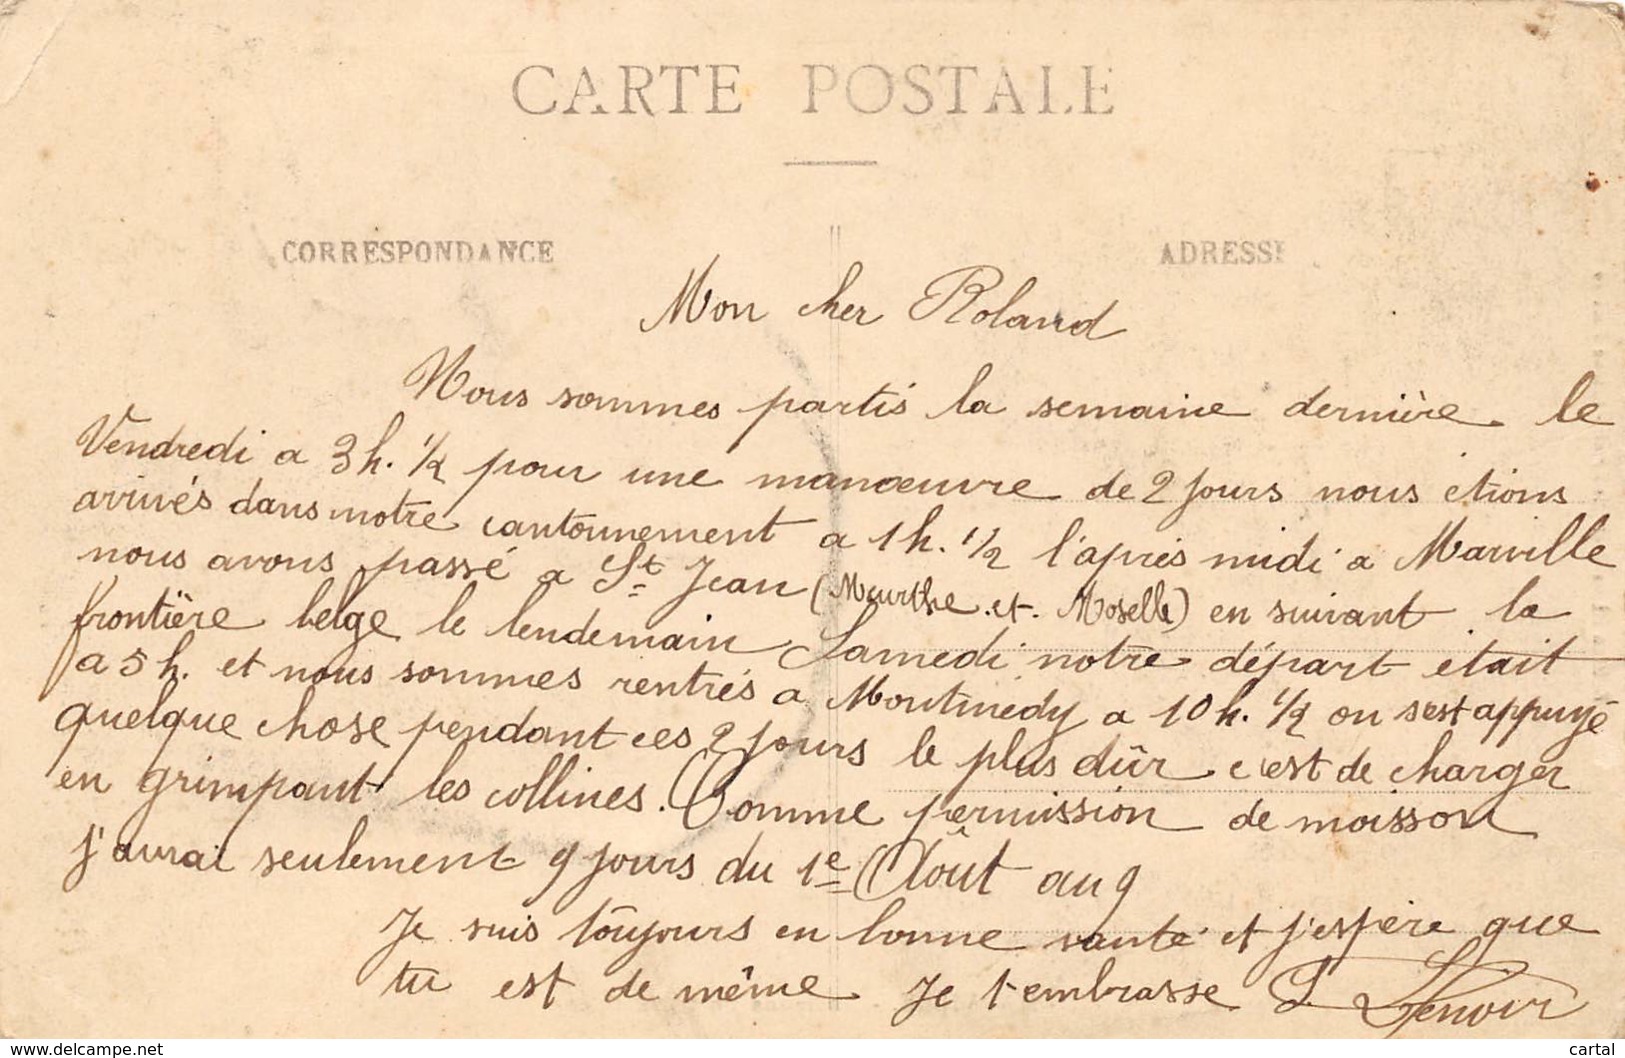 CARTE POSTALE
CORRESPONDANCE
ADRESSE
Mon cher Roland
Nous sommes partis la semaine dernière le
Vendredi a 3h. 1/2 pour une manœuvre de 2 jours nous étions
arrivés dans notre cantonnement a 1h. 1/2 l'après midi a Marville
nous avons passé a St Jean (Meurthe et Moselle) en suivant la
frontière belge le lendemain Samedi notre départ était
a 5h. et nous sommes rentrés a Montmédy a 10h. 1/2 on s'est appuyé
quelque chose pendant ces 2 jours le plus dûr c'est de charger
en grimpant les collines. Comme permission de moisson
j'aurai seulement 9 jours du 1e Août au 9
Je suis toujours en bonne santé et j'espère que
tu est de même Je t'embrasse L Lenoir
www.delcampe.net
cartal